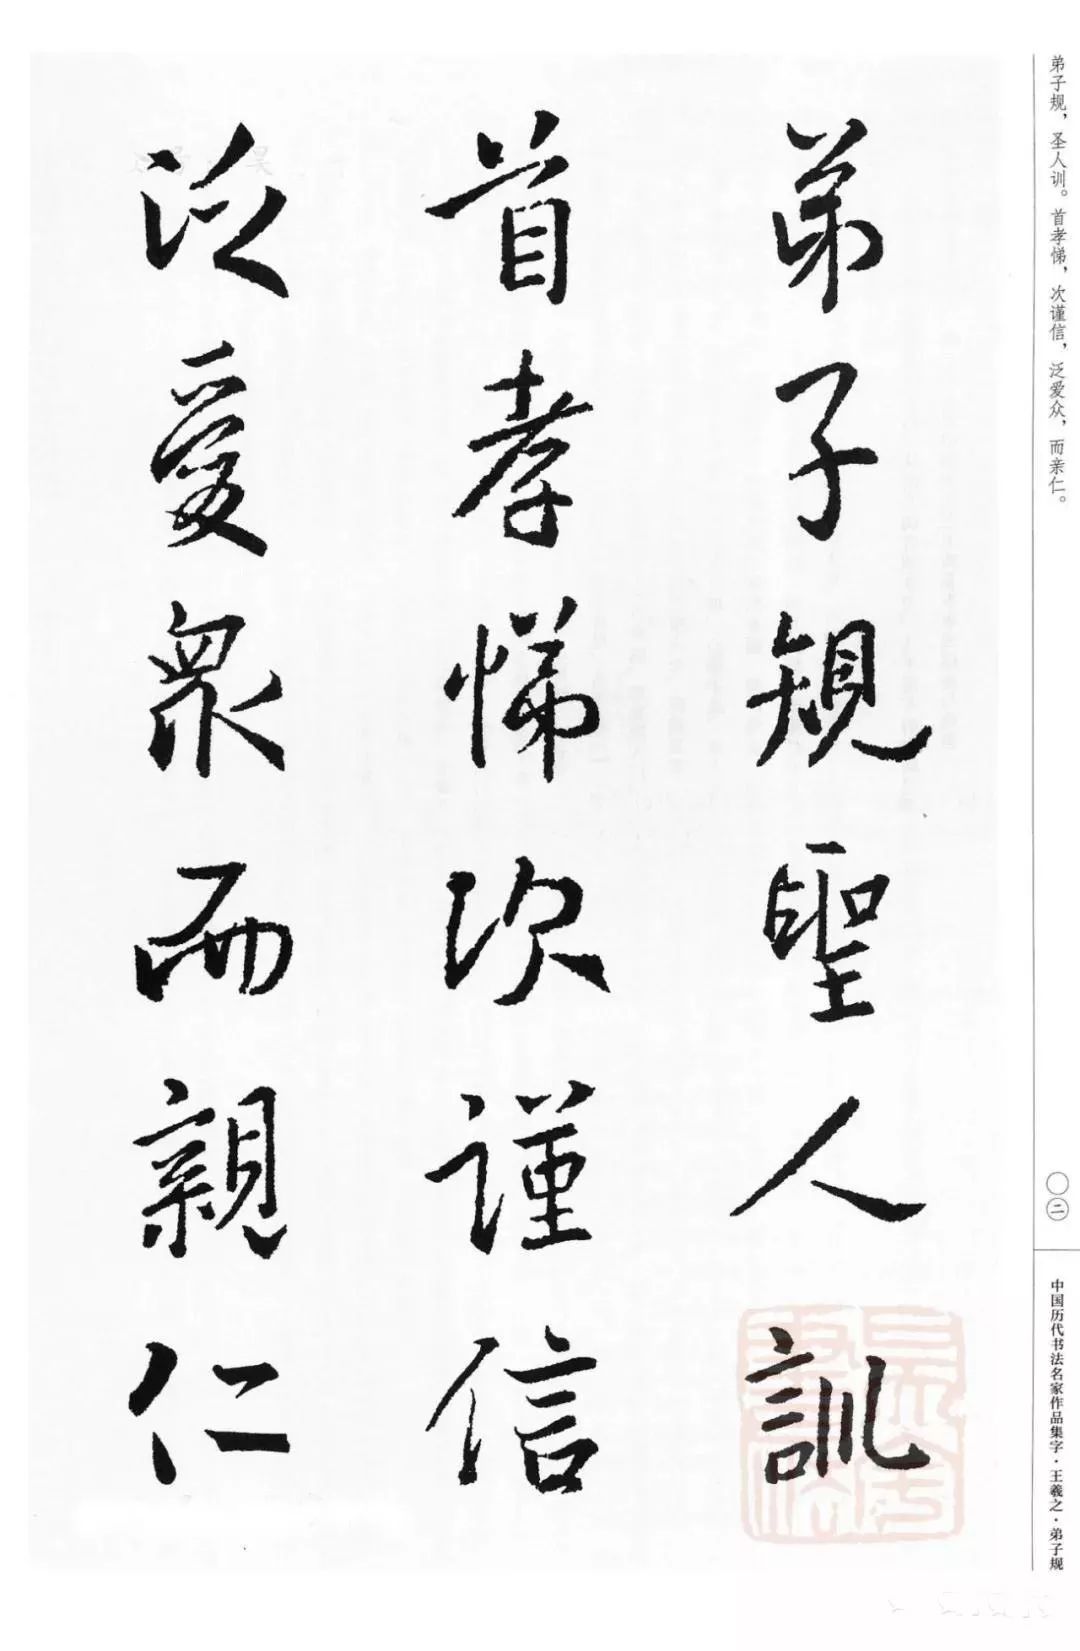 弟子规，圣人训。首孝悌，次谨信，泛爱众，而亲仁。
弟子規聖人訓
首孝悌次謹信
泛愛眾而親仁
〇二
中国历代书法名家作品集字·王羲之·弟子规